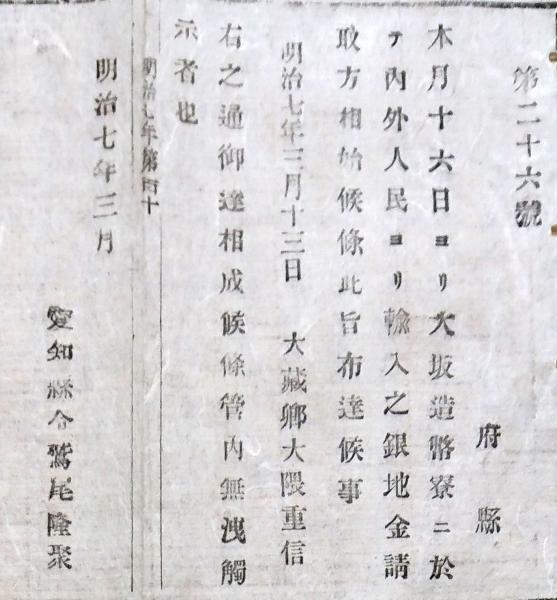 第二十六號
府縣
本月十六日ヨリ大坂造幣寮ニ於
テ內外人民ヨリ輸入之銀地金請
取方相始候條此旨布達候事
明治七年三月十三日 大藏卿大隈重信
右之通御達相成候條管內無洩觸
示者也
明治七年第百十
明治七年三月
愛知縣令鷲尾隆聚